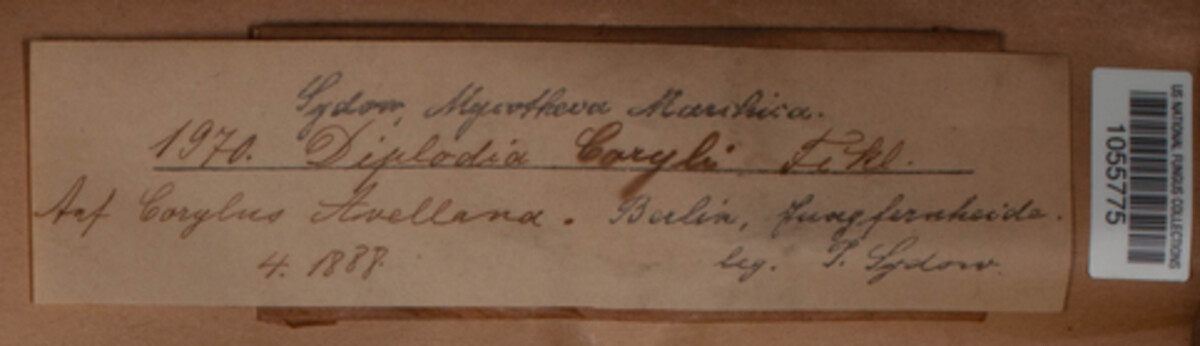 Sydow, Mycotheca Marchica.
1970. Diplodia Coryli Fckl.
Auf Corylus Avellana. Berlin, Jungfernheide.
4. 1888. leg. P. Sydow.
US NATIONAL FUNGUS COLLECTIONS
1055775